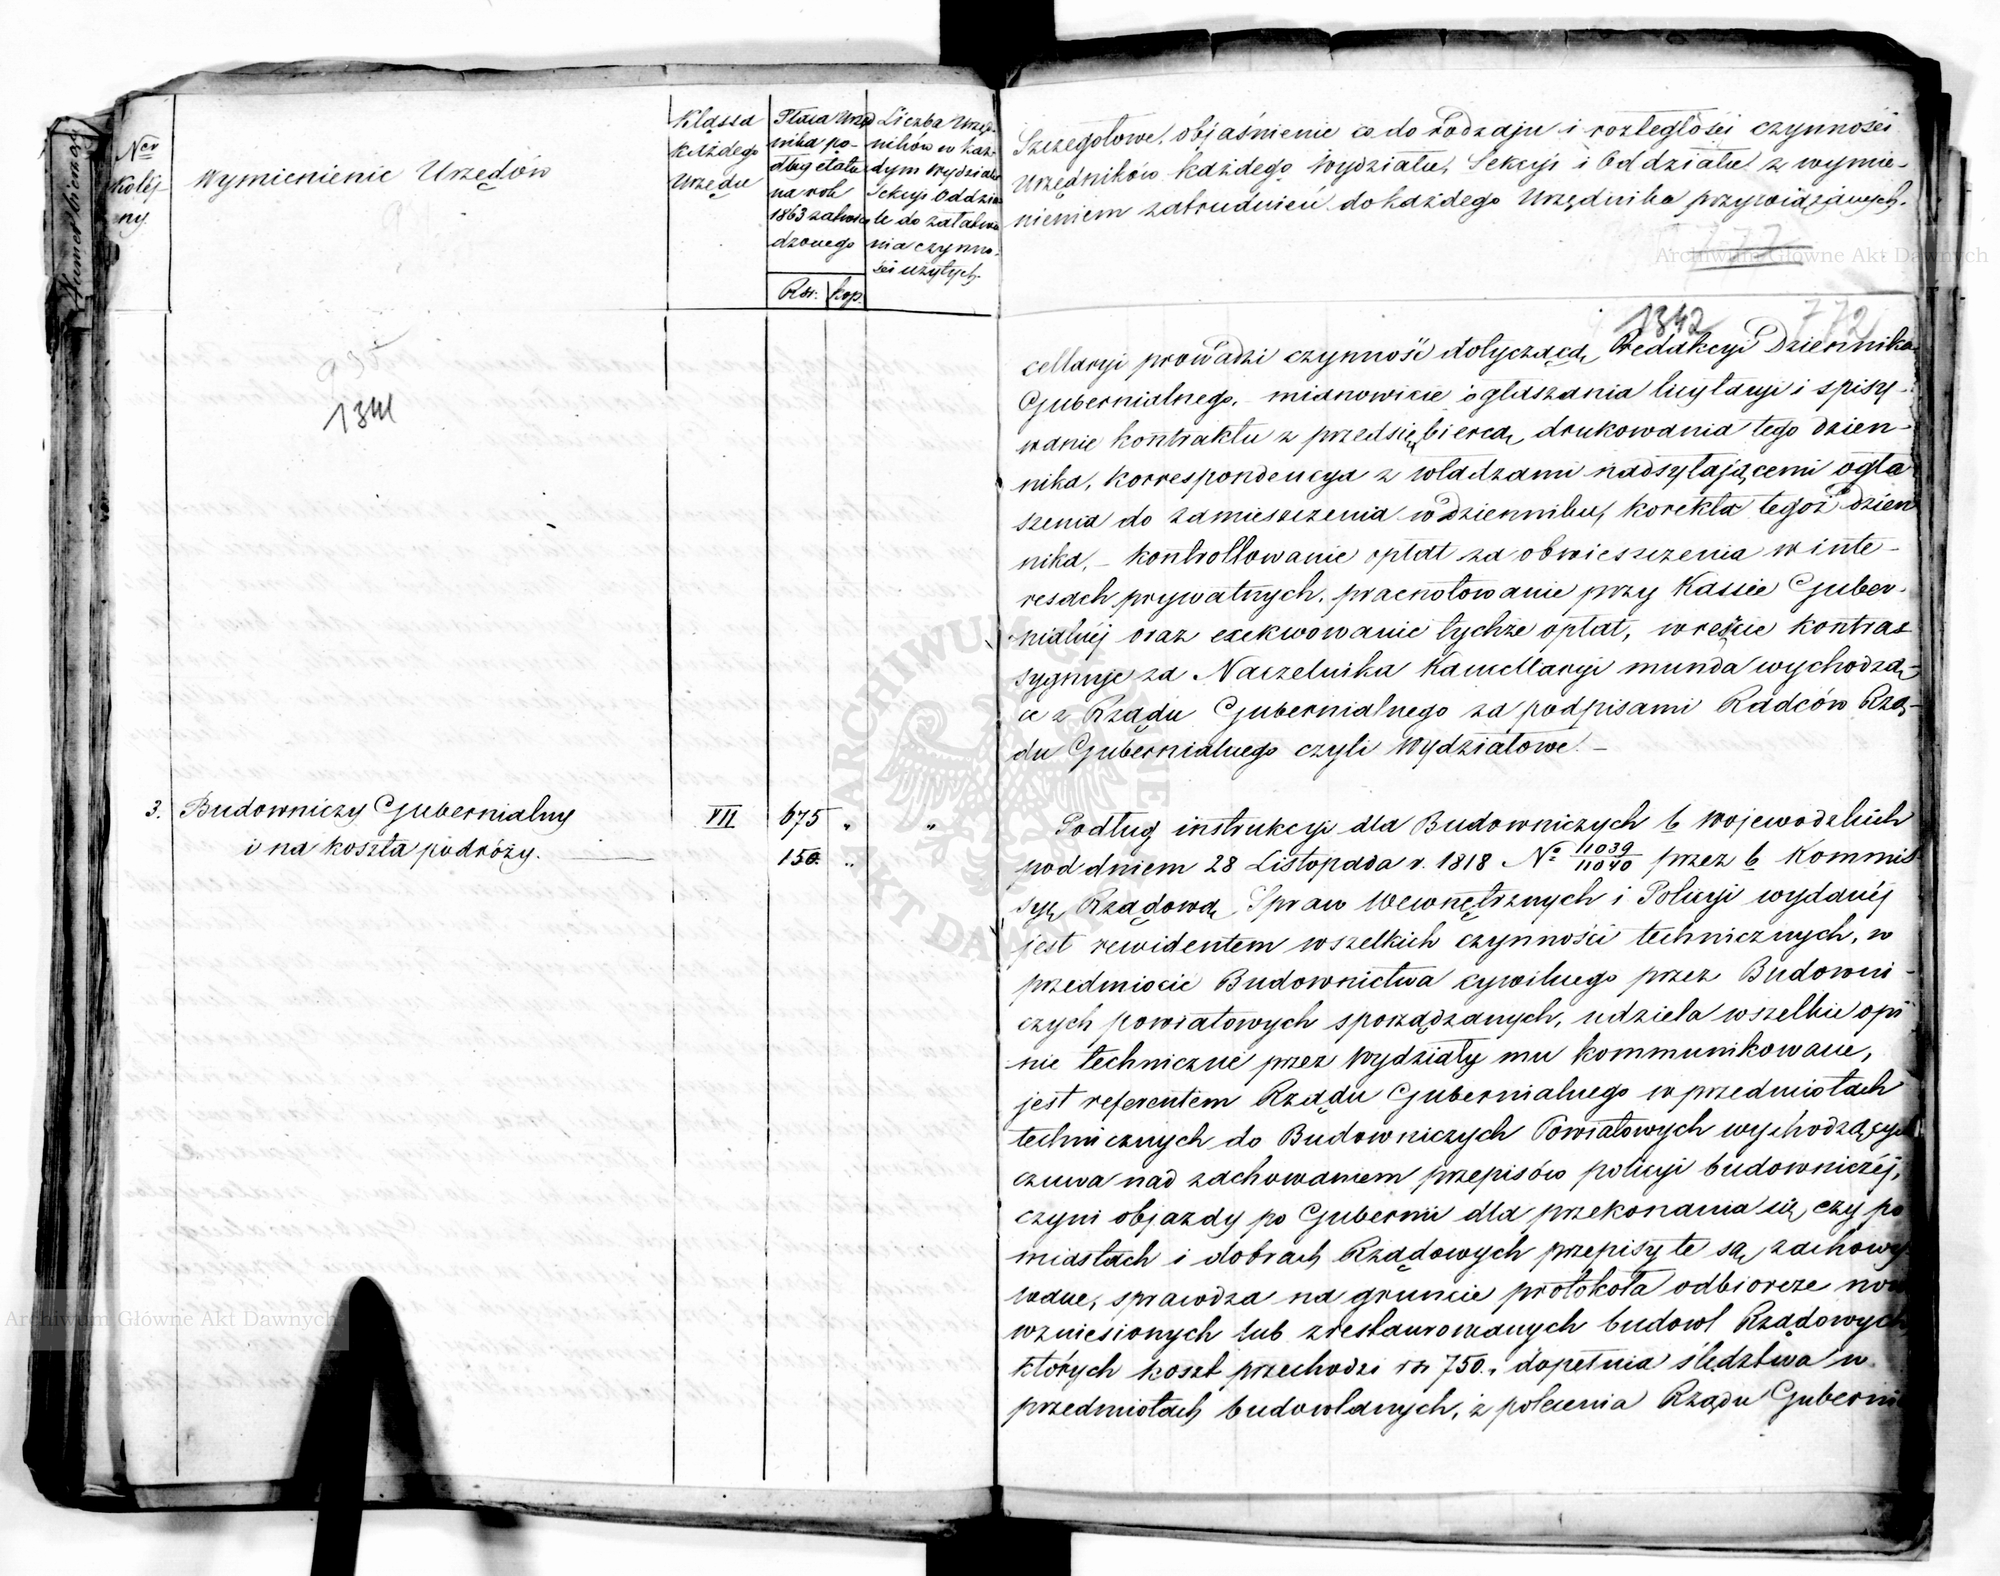 Numer bieżący
Ner
Kolej-
ny.
Wymienienie Urzędów
Klassa
każdego
Urzędu
Płaca Urzę
dnika po-
dług etatu
na rok
1863 zatwier
dzonego
Rsr. kop.
Liczba Urzęd-
ników w każ-
dym Wydziale
Sekcyi Oddzia
le do załatwie
nia czynno-
ści użytych.
935
1341
3. Budowniczy Gubernialny VII 675 " "
i na koszta podróży. 150. "
Szczegółowe objaśnienie co do rodzaju i rozległości czynności
Urzędników każdego Wydziału, Sekcyi i Oddziału z wymie-
nieniem zatrudnień do każdego Urzędnika przywiązanych.
777
1342 772
cellaryi prowadzi czynność dotyczącą Redakcyi Dziennika
Gubernialnego, mianowicie ogłaszania licytacyi i spisy-
wanie kontraktu z przedsiębiercą drukowania tego dzien-
nika, korrespondencya z władzami nadsyłającemi ogła
szenia do zamieszczenia w dzienniku, korekta tegoż dzien
nika, – kontrollowanie opłat za obwieszczenia w inte-
resach prywatnych, praenotowanie przy Kassie Guber-
nialnéj oraz exekwowanie tychże opłat, wreście kontras
sygnuje za Naczelnika Kancellaryi munda wychodzą-
ce z Rządu Gubernialnego za podpisami Radców Rzą-
du Gubernialnego czyli Wydziałowe. –
Podług instrukcyi dla Budowniczych b Wojewodzkich
pod dniem 28 Listopada r. 1818 No 11039/11040 przez b Kommis
syę Rządową Spraw Wewnętrznych i Policyi wydanéj
jest rewidentem wszelkich czynności technicznych, w
przedmiocie Budownictwa cywilnego przez Budowni-
czych powiatowych sporządzanych, udziela wszelkie opi
nie techniczne przez Wydziały mu kommunikowane,
jest referentem Rządu Gubernialnego w przedmiotach
technicznych do Budowniczych Powiatowych wychodzących
czuwa nad zachowaniem przepisów policyi budowniczéj,
czyni objazdy po Gubernii dla przekonania się, czy po
miastach i dobrach Rządowych przepisy te są zachowy
wane, sprawdza na gruncie protokoła odbiorcze now
wzniesionych lub zrestaurowanych budowl Rządowych,
których koszt przechodzi rs 750., dopełnia śledztwa w
przedmiotach budowlanych, z polecenia Rządu Guberni
ARCHIWUM GŁÓWNE AKT DAWNYCH
Archiwum Główne Akt Dawnych
Archiwum Główne Akt Dawnych